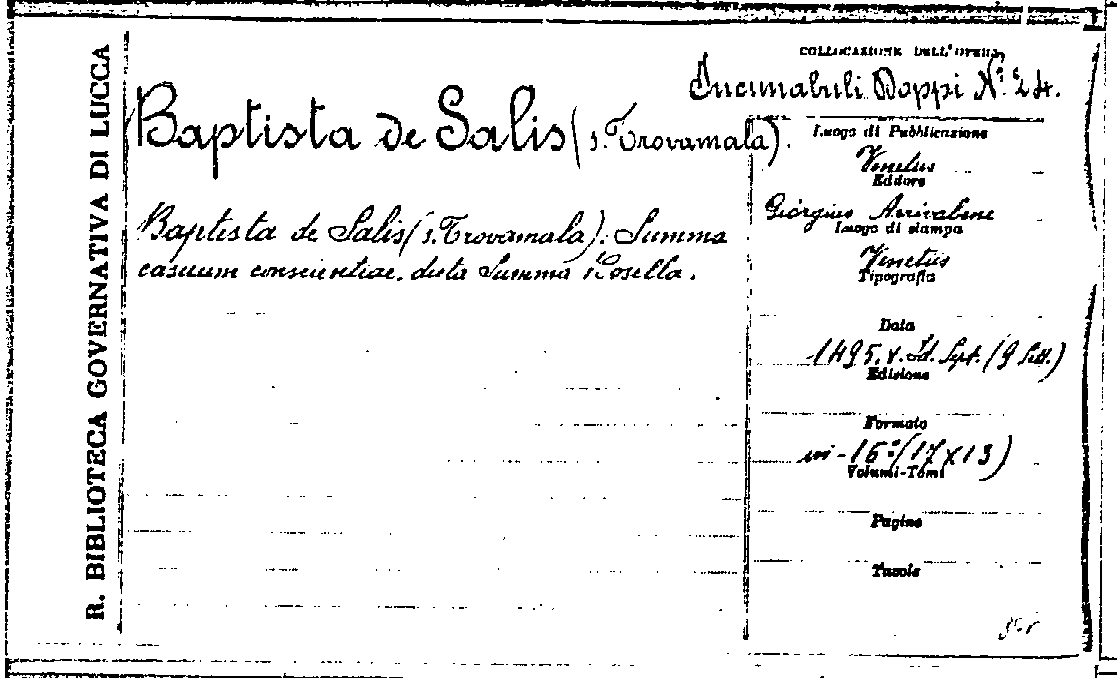 R. BIBLIOTECA GOVERNATIVA DI LUCCA
COLLOCAZIONE DELL'OPERA
Incunabuli Doppi N.º 24.
Baptista de Salis (s. Trovamala).
Baptista de Salis (s. Trovamala). Summa
casuum conscientiae. dicta Summa Rosella.
Luogo di Pubblicazione
Venetiis
Editore
Giorgius Arrivabene
Luogo di stampa
Venetiis
Tipografia
Data
1495. v. Id. Sept. (9 Sett.)
Edizione
Formato
in-16º (17 x 13)
Volumi-Tomi
Pagine
Tavole